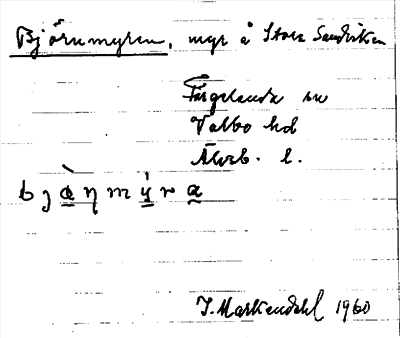 Björnmyren, myr å Stora Sandviken
Färgelanda sn
Valbo hd
Älvsb. l.
b j ɵ̀ η m ý r a
J. Markendahl 1960